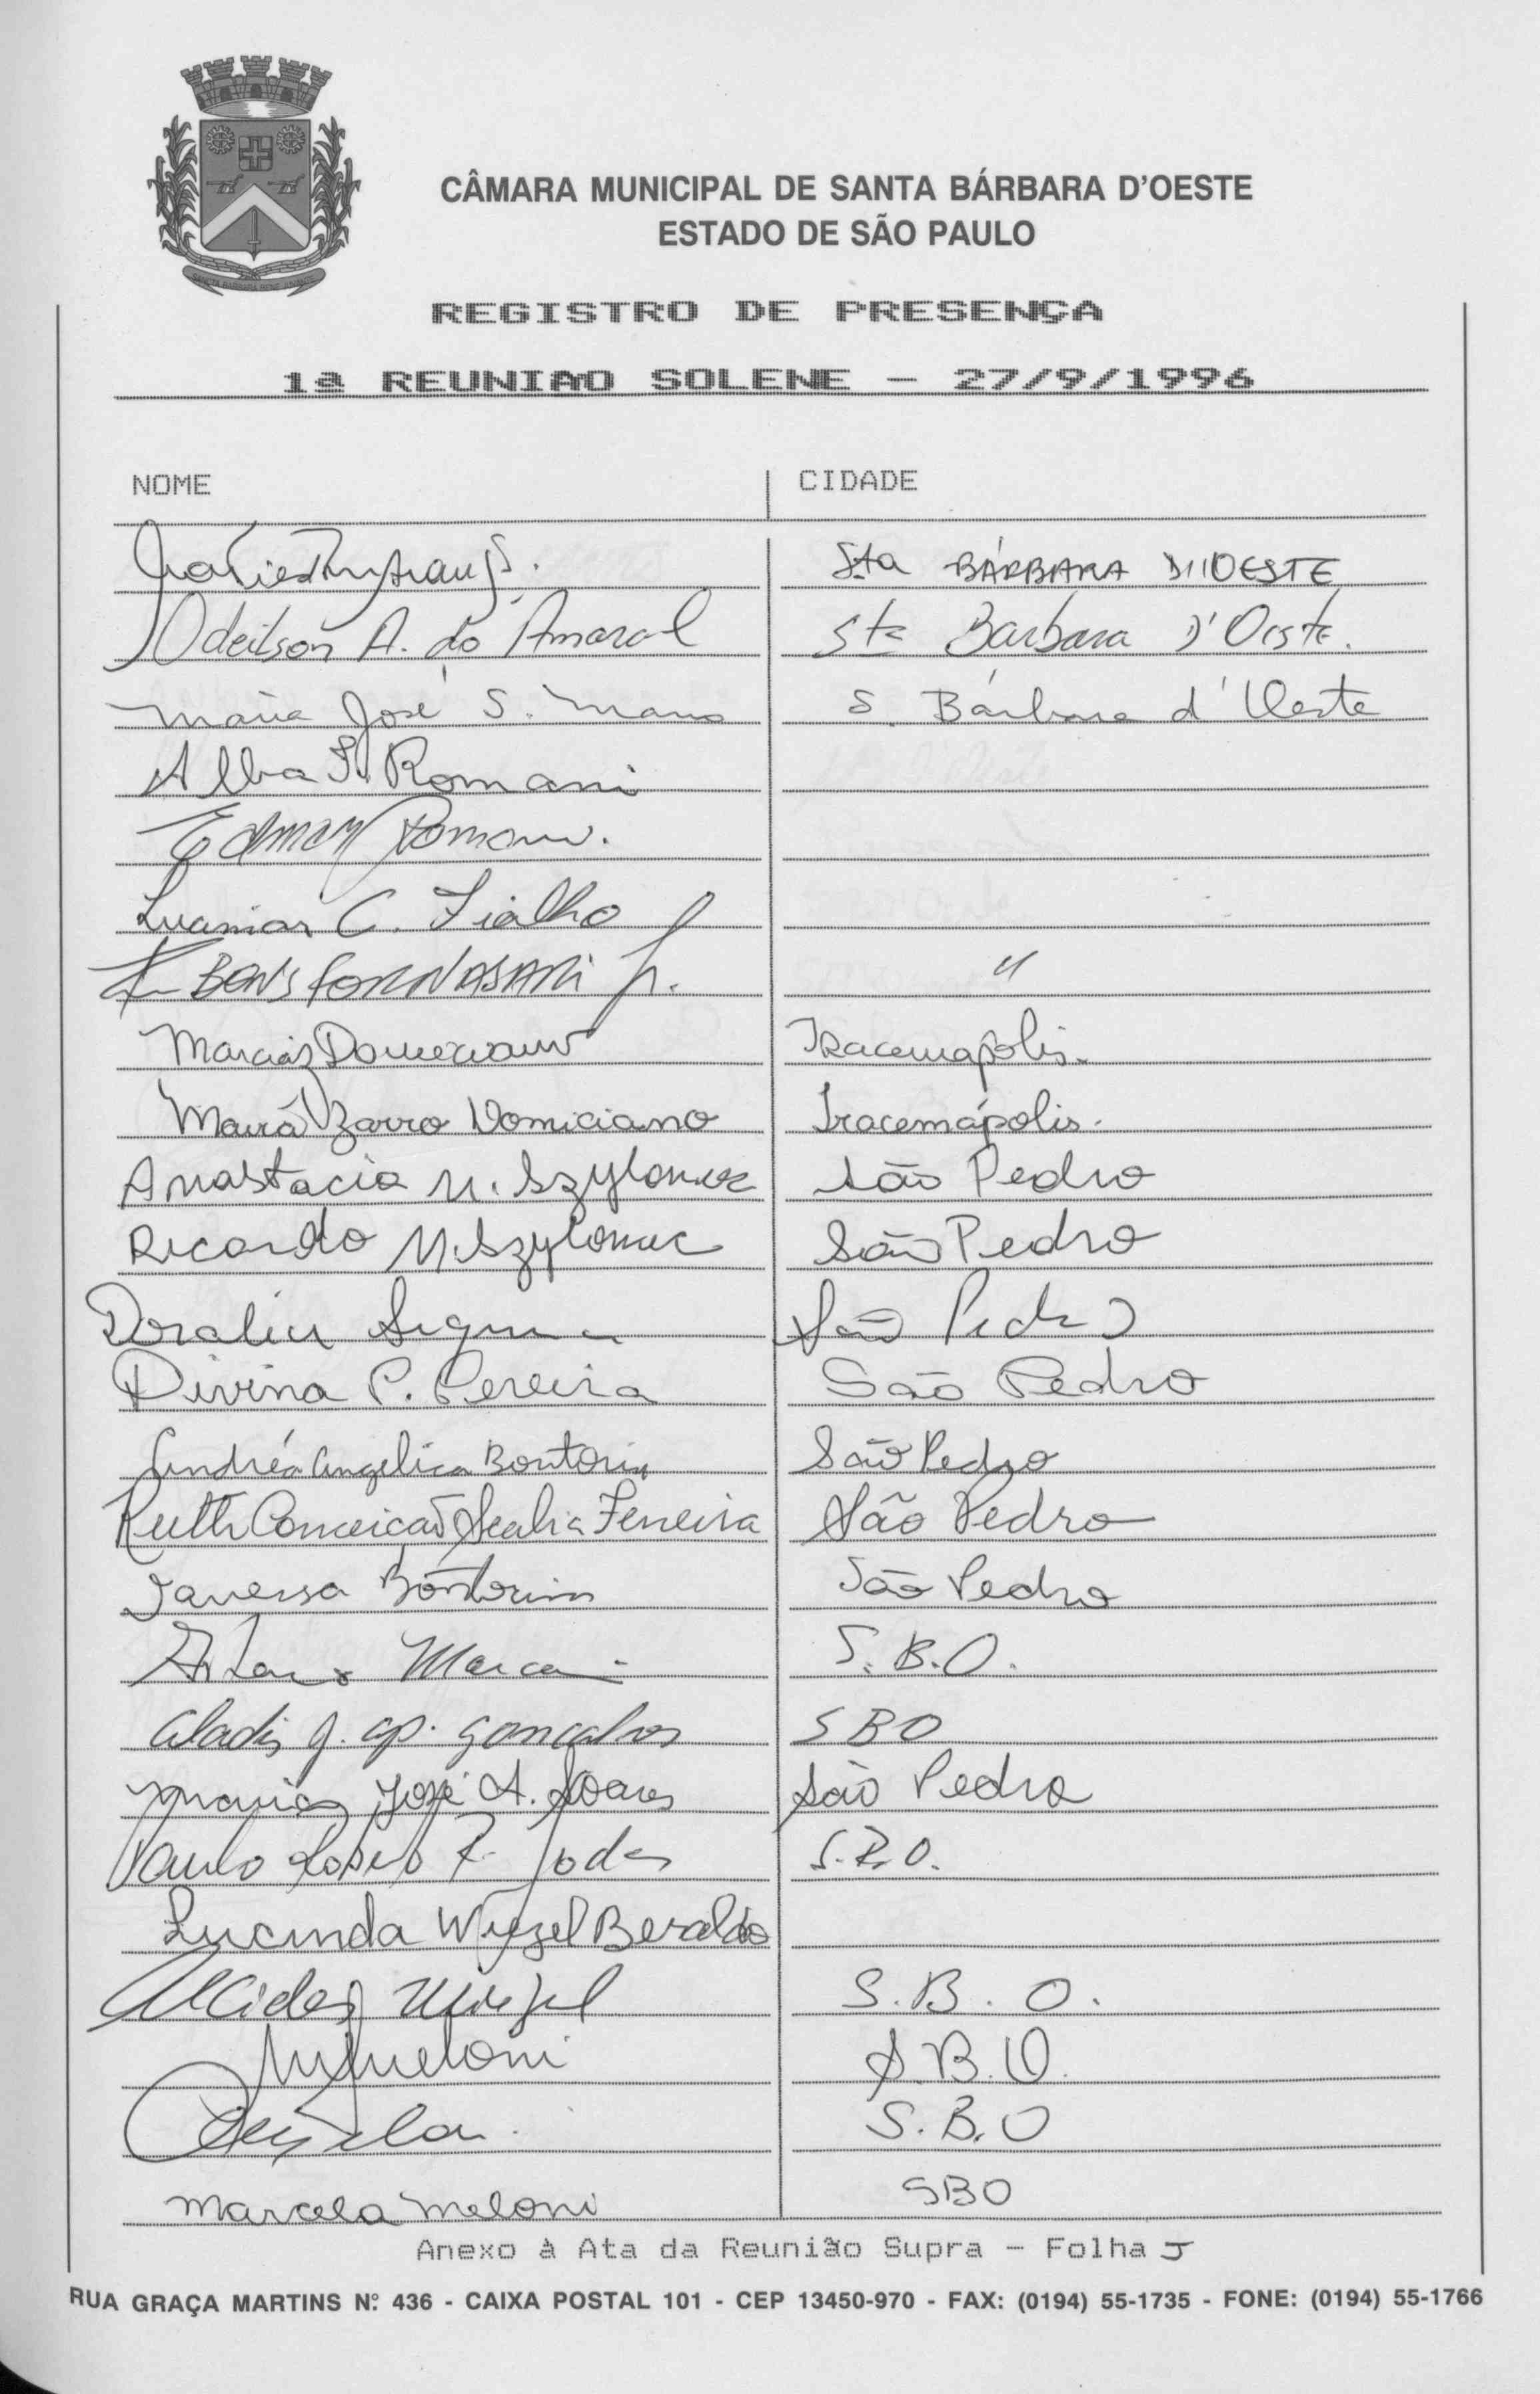 CÂMARA MUNICIPAL DE SANTA BÁRBARA D'OESTE
ESTADO DE SÃO PAULO
REGISTRO DE PRESENÇA
1ª REUNIAO SOLENE - 27/9/1996
NOME CIDADE
Sta BÁRBARA D'OESTE
Odeilson A. do Amaral Sta Bárbara D'Oeste.
Maria José S. S. Bárbara d'Oeste
Alba Romani
Edmar Romani.
C. Fialho
FORNASARI Jr. "
Iracemápolis.
Zarro Domiciano Iracemápolis.
Anastacia M. São Pedro
Ricardo M. São Pedro
São Pedro
Divina P. Pereira São Pedro
Andréa Angelica Bontorim São Pedro
Ruth Conceição Scalia Ferreira São Pedro
Vanessa Bontorim São Pedro
S.B.O.
ap. Gonçalves SBO
Maria José A. Soares São Pedro
Paulo S.B.O.
Lucinda Wiezel Beraldo
Alcides Wiezel S.B.O.
S.B.O.
S.B.O
Marcela Meloni SBO
Anexo à Ata da Reunião Supra - Folha
RUA GRAÇA MARTINS Nº 436 - CAIXA POSTAL 101 - CEP 13450-970 - FAX: (0194) 55-1735 - FONE: (0194) 55-1766